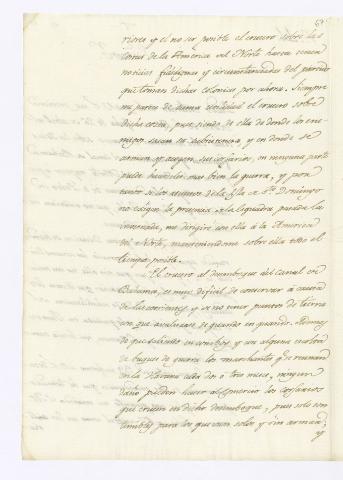 riores y el no ser posible el crucero sobre las
costas de la America del Norte hasta tener
noticias fidedignas y circunstanciadas del partido
que toman dichas colonias por ahora. Siempre
me parece de suma utilidad el crucero sobre
dicha costa, pues siendo de ella de donde los ene-
migos sacan su subsistencia y en donde se
arman y acogen sus corsarios, en ninguna parte
puede hacerseles mas bien la guerra, y por
tanto si los asuntos de la Ysla de Sto. Domingo
no exigen la presencia de la esquadra puesta la
invernada, me dirigire con ella á la America
del Norte, manteniendome sobre ella todo el
tiempo posible.
El crucero al desemboque del canal de
Bahama, es muy dificil de conservar á causa
de las corrientes, y de no tener puntos de tierra
con que avalizarse de quando en quando. Ademas
de que saliendo en comboy, y con alguna escolta
de buques de guerra los merchantes q.e se reunan
en la Havana cada dos ó tres meses, ningun
daño pueden hacer al comercio los corsarios
que crucen en dicho desemboque, pues solo son
temibles para los que van solos y sin armam.
y